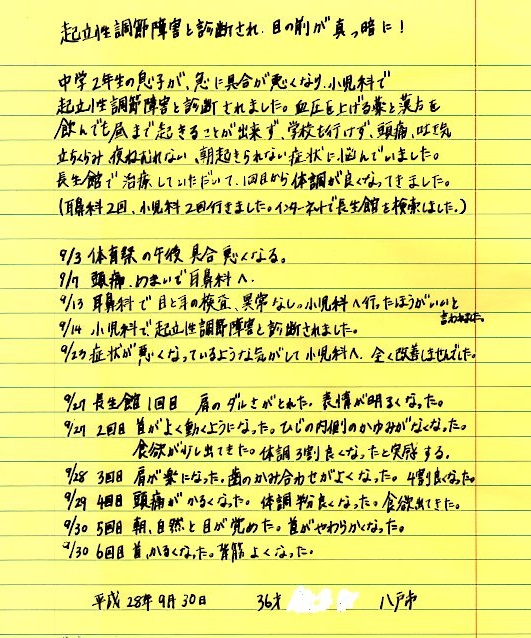 起立性調節障害と診断され、目の前が真っ暗に！
中学2年生の息子が、急に具合が悪くなり、小児科で
起立性調節障害と診断されました。血圧を上げる薬と漢方を
飲んでも昼まで起きることが出来ず、学校も行けず、頭痛、吐き気
立ちくらみ 夜ねむれない、朝起きられない症状に悩んでいました。
長生館で治療していただいて、1回目から体調が良くなってきました。
(耳鼻科2回、小児科2回行きました。インターネットで長生館を検索しました。)
9/3 体育祭の午後 具合悪くなる。
9/7 頭痛、めまいで耳鼻科へ。
9/13 耳鼻科で目と耳の検査、異常なし。小児科へ行ったほうがいいと
言われました。
9/14 小児科で起立性調節障害と診断されました。
9/23 症状が悪くなっているような気がして小児科へ。全く改善しませんでした。
9/27 長生館1回目 肩のダルさがとれた。表情が明るくなった。
9/27 2回目 首がよく動くようになった。ひじの内側のかゆみがなくなった。
食欲が少し出てきた。体調3割良くなったと実感する。
9/28 3回目 肩が楽になった。歯のかみ合わせがよくなった。4割良くなった。
9/29 4回目 頭痛がかるくなった。体調 良くなった。食欲出てきた。
9/30 5回目 朝、自然と目が覚めた。首がやわらかくなった。
9/30 6回目 首、かるくなった。背筋よくなった。
平成28年9月30日 36才 八戸市